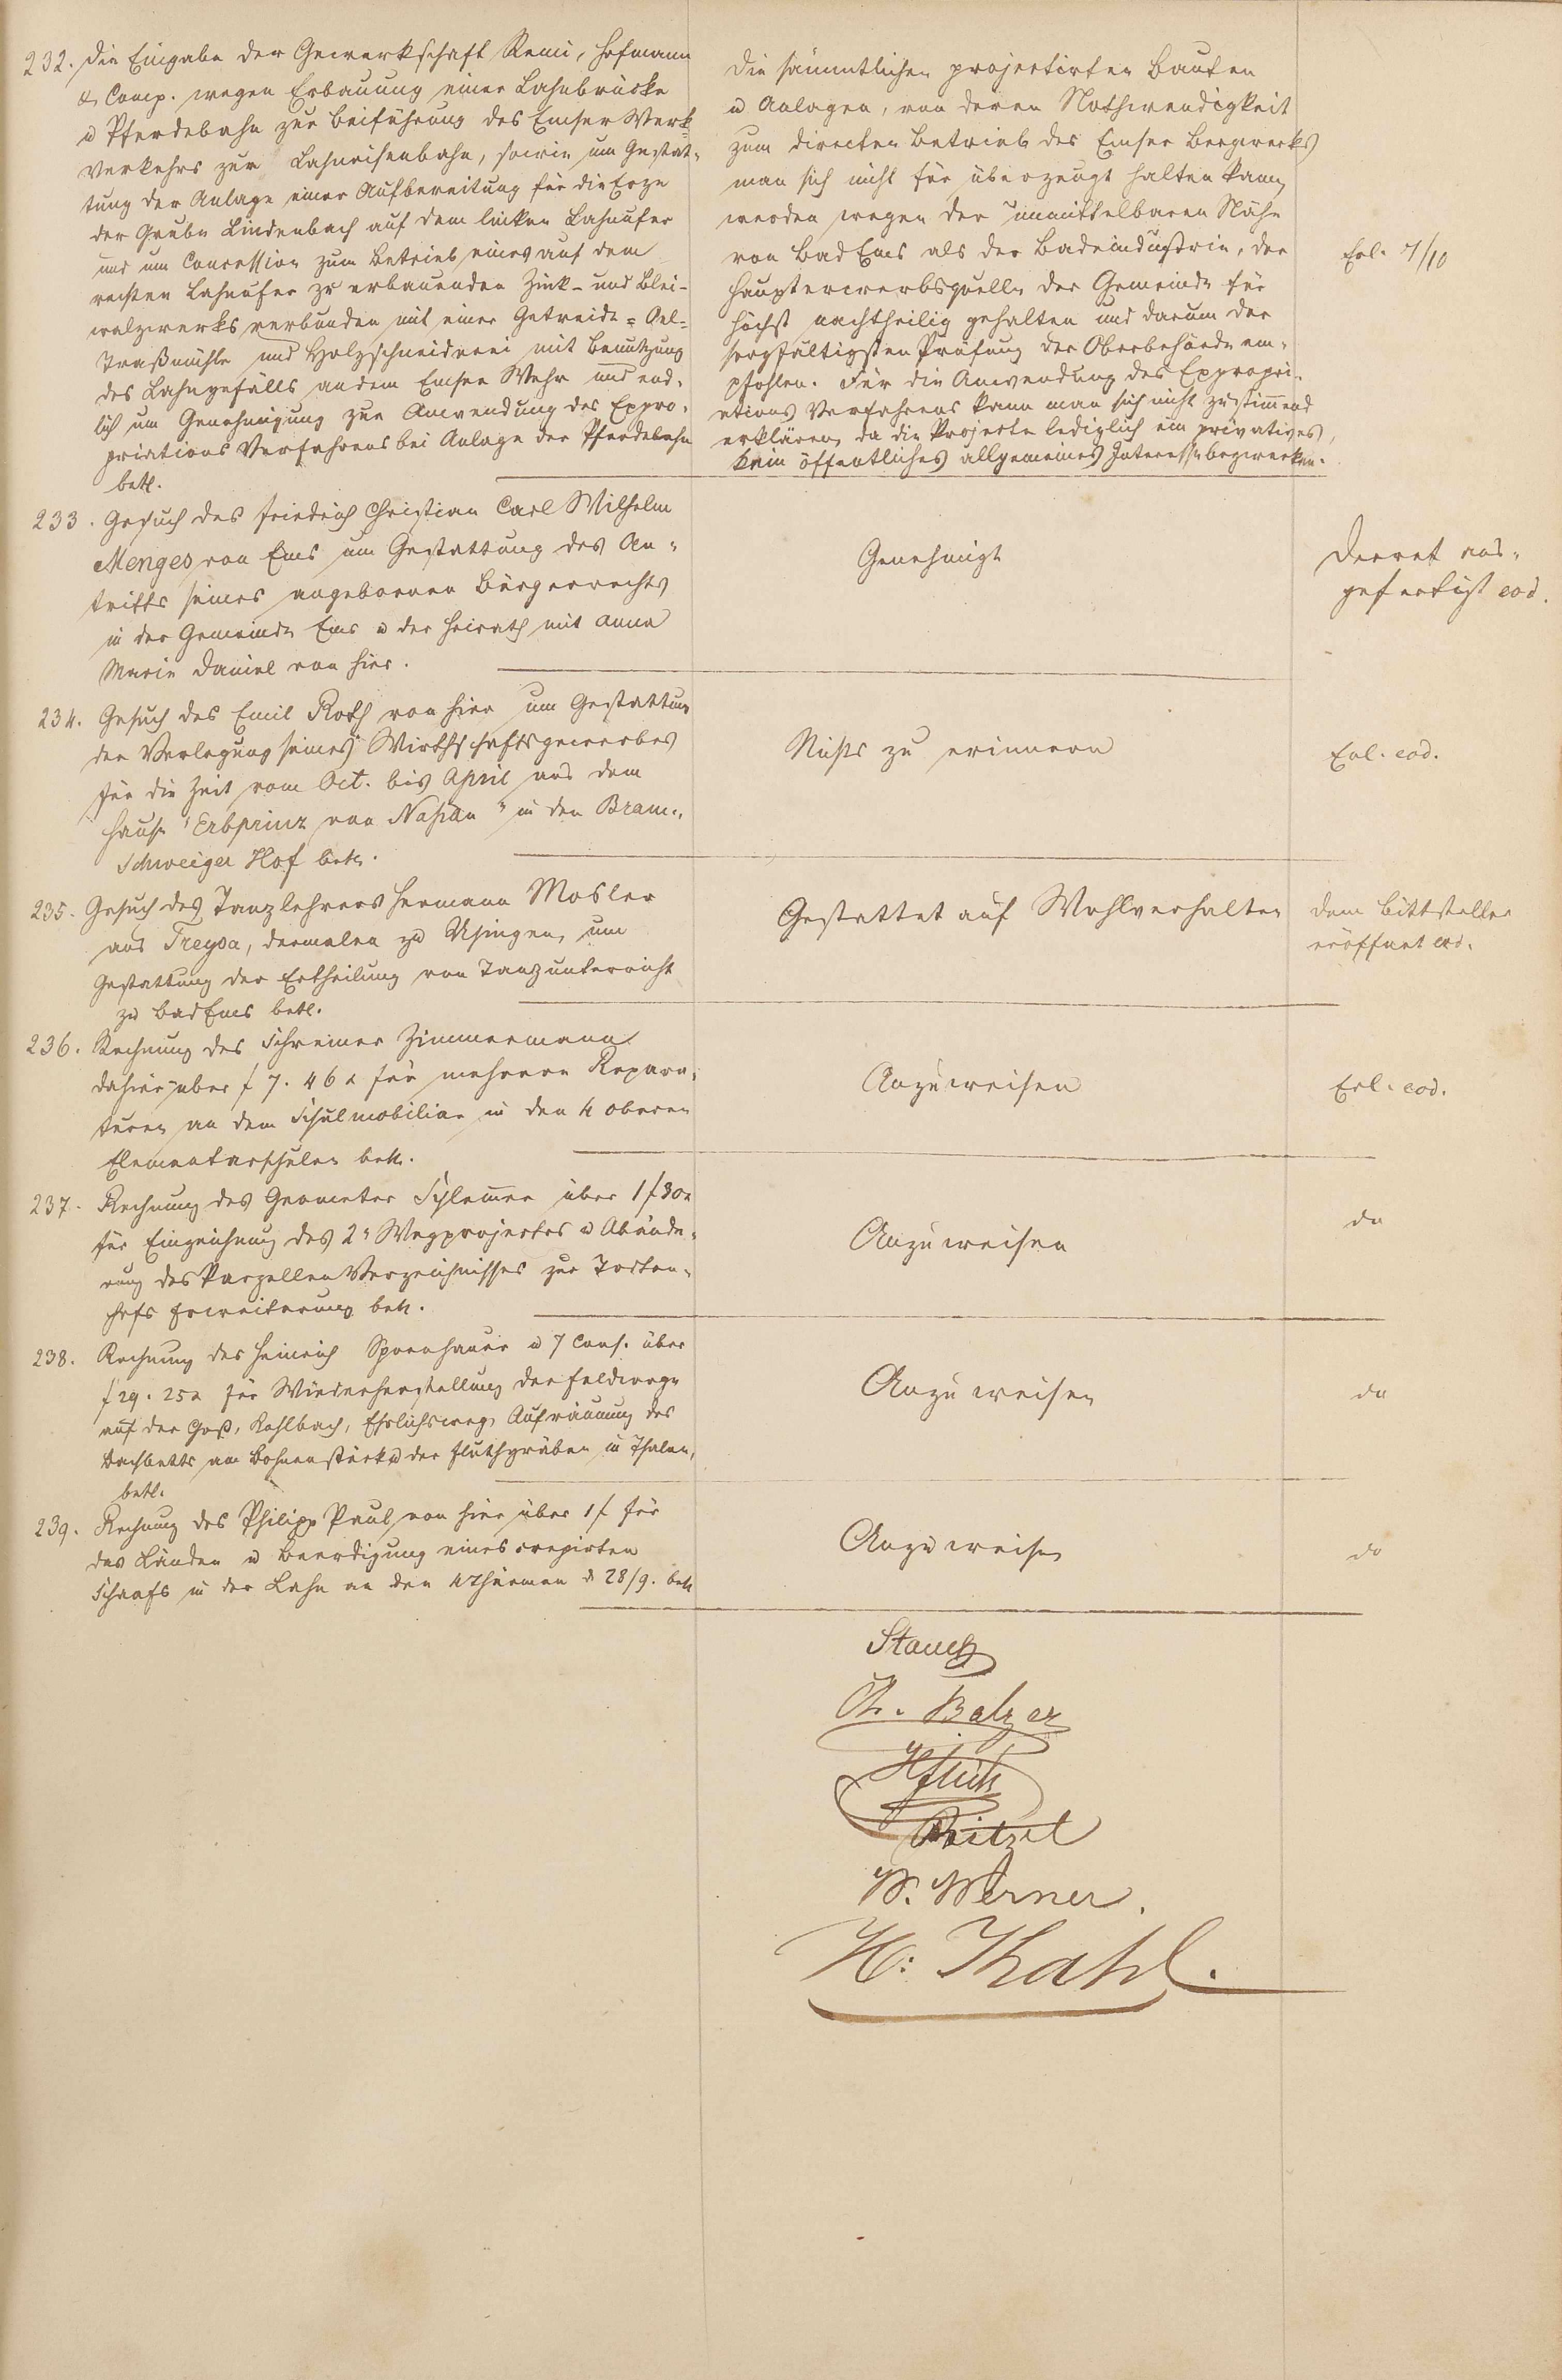 232. Die Eingabe der Gewerkschaft Remi, Hofmann
& Comp. wegen Erbauung einer Lahnbrücke
u Pferdebahn zur Beiführung des Emser Werk-
Verkehrs zur Lahneisenbahn, sowie um Gestat-
tung der Anlage einer Aufbereitung für die Erze
der Grube Lindenbach auf dem linken Lahnufer
und um Concession zum Betrieb eines auf dem
rechten Lahnufer zu erbauenden Zink- und Blei-
walzwerks verbunden mit einer Getreide- Oel-
Traßmühle und Holzschneiderei mit Benutzung
des Lahngefälls an dem Emser Wehr und end-
lich um Genehmigung zur Anwendung des Expro-
priations Verfahrens bei Anlage der Pferdebahn
betr.
Die sämmtlichen projectirten Bauten
u Anlagen, von deren Nothwendigkeit
zum directen Betrieb des Emser Bergwerks
man sich nicht für überzeugt halten kann,
werden wegen der unmittelbaren Nähe
von Bad Ems als der Badeindustrie, der
Haupterwerbsquelle der Gemeinde für
höchst nachtheilig gehalten und darum der
sorgfältigsten Prüfung der Oberbehörde em-
pfohlen. Für die Anwendung des Expropri-
ations Verfahrens kann man sich nicht zustimmend
erklären, da die Projecte lediglich ein privatives,
kein öffentliches allgemeines Interesse bezwecken.
Erl. 7/10
233. Gesuch des Friedrich Christian Carl Wilhelm
Menges von Ems um Gestattung des An-
tritts seines angebornen Bürgerrechts
in der Gemeinde Ems u der Heirath mit Anna
Marie Daniel von hier.
Genehmigt
Decret aus-
gefertigt eod.
234. Gesuch des Emil Roth von hier um Gestattung
der Verlegung seines Wirthschaftsgewerbes
für die Zeit vom Oct. bis April aus dem
Hause "Erbprinz von Naßau" in den Braun-
Schweiger Hof betr.
Nichts zu erinnern
Erl. eod.
235. Gesuch des Tanzlehrers Hermann Mosler
aus Treysa, dermalen zu Usingen, um
Gestattung der Ertheilung von Tanzunterricht
zu Bad Ems betr.
Gestattet auf Wohlverhalten
dem Bittsteller
eröffnet eod.
236. Rechnung des Schreiner Zimmermann
dahier über f 7. 46 x für mehrere Repara-
turen an dem Schulmobiliar in den 4 oberen
Elementarschulen betr.
Anzuweisen
Erl. eod.
237. Rechnung des Geometer über 1 f 30 x
für Einzeichnung des 2n Wegprojectes u Abände-
rung des Parzellen Verzeichnisses zur Todten-
hofs Erweiterung betr.
Anzuweisen
do
238. Rechnung des Heinrich Sporenhauer u 7 Cons. über
f 29. 25 x für Wiederherstellung der Feldwege
auf der Kohlbach, Ehrlichsweg, Aufräumung des
Bachbetts am Bohnenstück u der Fluthgräben in Thalen,
betr.
Anzuweisen
do
239. Rechnung des Philipp Paul von hier über 1 f für
das Länden u Beerdigung eines crepirten
Schaafs in der Lahn an den 4 Thürmen d 28/9. betr
Anzuweisen
do
Stauch
Balzer
Pritzel
W. Werner.
H: Thahl.